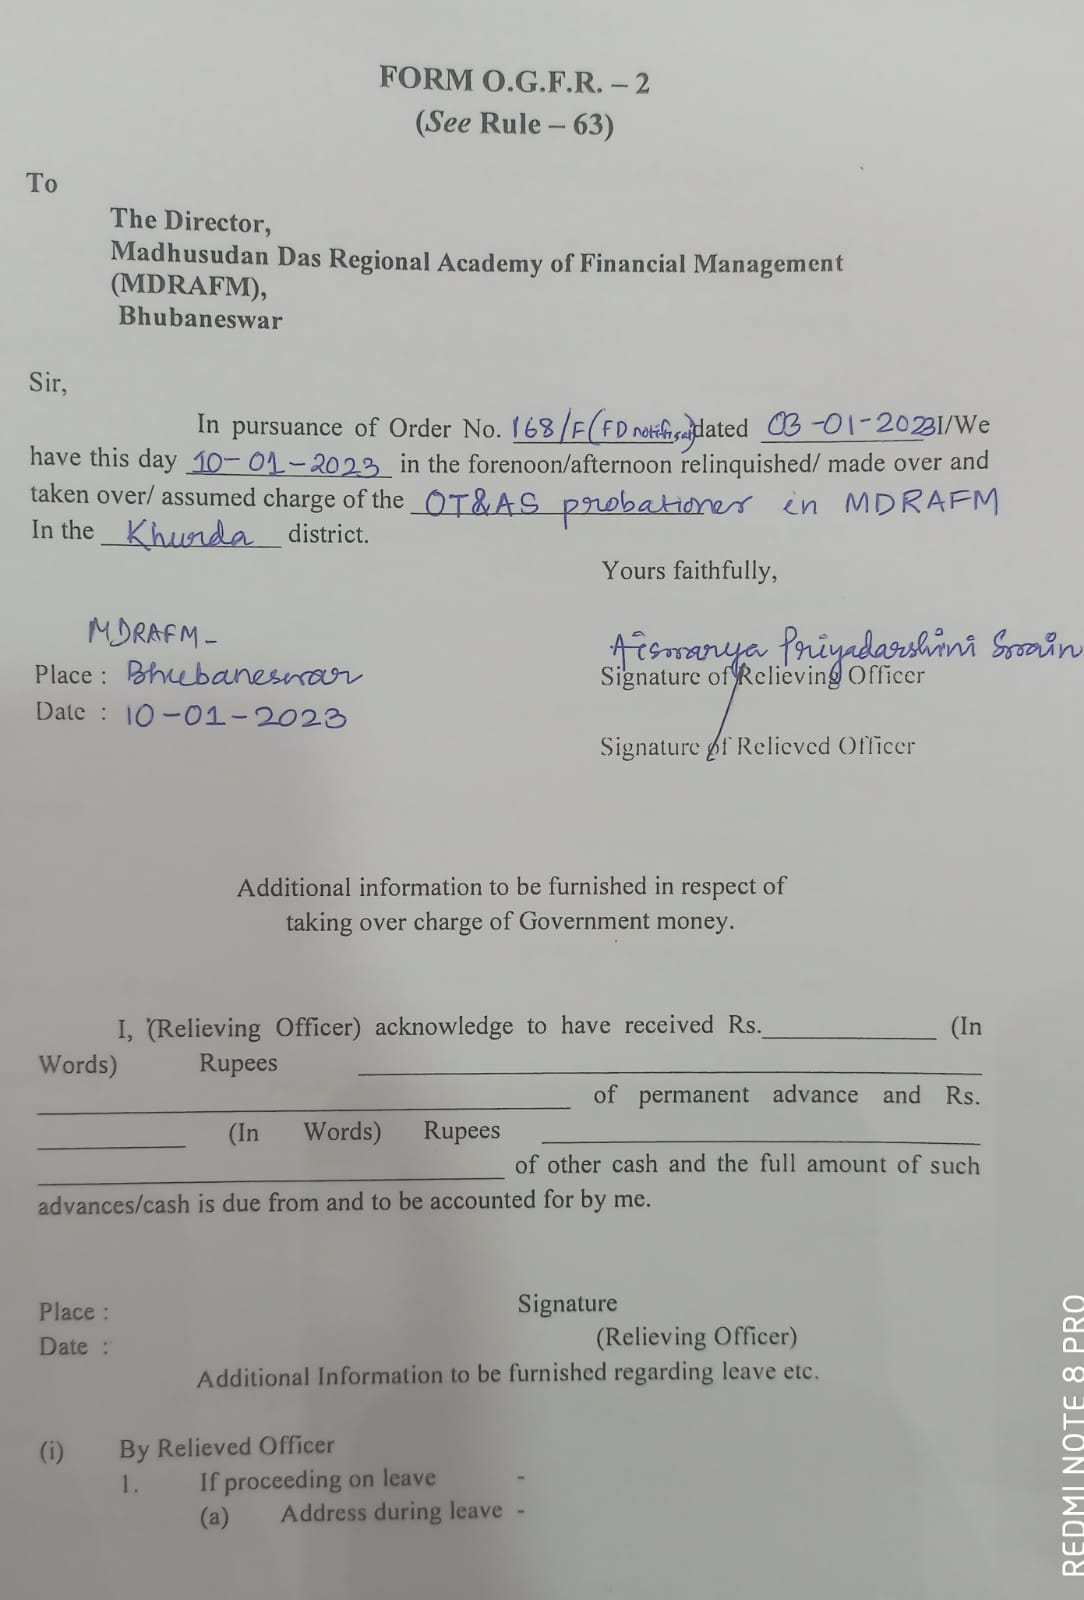 FORM O.G.F.R. – 2
(See Rule – 63)
To
The Director,
Madhusudan Das Regional Academy of Financial Management
(MDRAFM),
Bhubaneswar
Sir,
In pursuance of Order No. 168/F (FD dated 03-01-2023 I/We
have this day 10-01-2023 in the forenoon/afternoon relinquished/ made over and
taken over/ assumed charge of the OT&AS probationer in MDRAFM
In the Khurda district.
Yours faithfully,
MDRAFM-
Aiswarya Priyadarshini Swain
Place : Bhubaneswar
Signature of Relieving Officer
Date : 10-01-2023
Signature of Relieved Officer
Additional information to be furnished in respect of
taking over charge of Government money.
I, (Relieving Officer) acknowledge to have received Rs. (In
Words) Rupees
of permanent advance and Rs.
(In Words) Rupees
of other cash and the full amount of such
advances/cash is due from and to be accounted for by me.
Place :
Signature
Date :
(Relieving Officer)
Additional Information to be furnished regarding leave etc.
(i) By Relieved Officer
1. If proceeding on leave -
(a) Address during leave -
REDMI NOTE 8 PRO